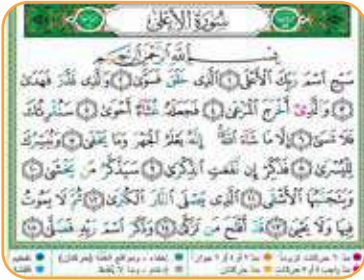 سُورَةُ الأَعْلَى
بِسْمِ اللَّهِ الرَّحْمَٰنِ الرَّحِيمِ
سَبِّحِ اسْمَ رَبِّكَ الْأَعْلَى ١ الَّذِي خَلَقَ فَسَوَّى ٢ وَالَّذِي قَدَّرَ فَهَدَى
٣ وَالَّذِي أَخْرَجَ الْمَرْعَى ٤ فَجَعَلَهُ غُثَاءً أَحْوَى ٥ سَنُقْرِئُكَ
فَلَا تَنسَى ٦ إِلَّا مَا شَاءَ اللَّهُ إِنَّهُ يَعْلَمُ الْجَهْرَ وَمَا يَخْفَى ٧ وَنُيَسِّرُكَ
لِلْيُسْرَى ٨ فَذَكِّرْ إِن نَّفَعَتِ الذِّكْرَى ٩ سَيَذَّكَّرُ مَن يَخْشَى ١٠
وَيَتَجَنَّبُهَا الْأَشْقَى ١١ الَّذِي يَصْلَى النَّارَ الْكُبْرَى ١٢ ثُمَّ لَا يَمُوتُ
فِيهَا وَلَا يَحْيَى ١٣ قَدْ أَفْلَحَ مَن تَزَكَّى ١٤ وَذَكَرَ اسْمَ رَبِّهِ فَصَلَّى ١٥